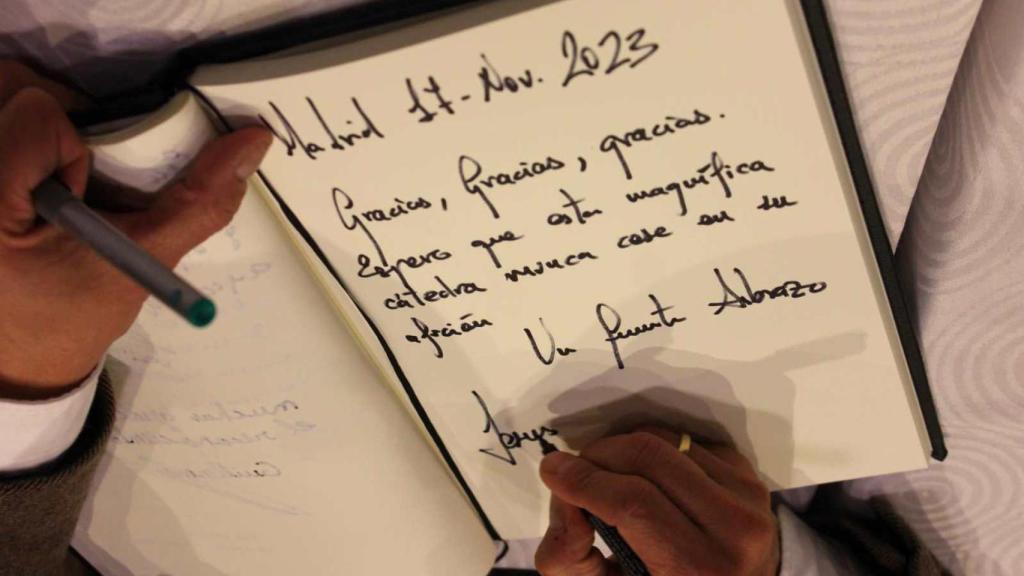 Madrid 17-Nov. 2023
Gracias, Gracias, gracias.
Espero que esta magnífica
cátedra nunca cese en su
afición
Un fuerte Abrazo
muchas
Cautivo